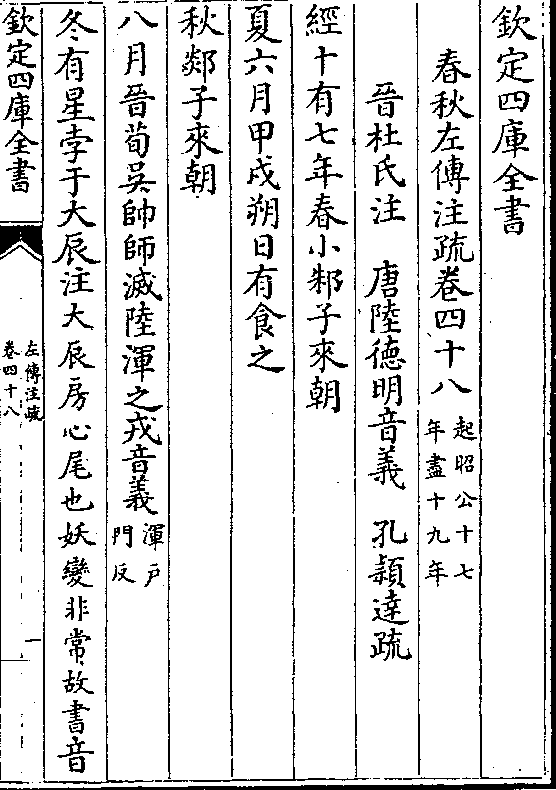 欽定四庫全書
春秋左傳注疏卷四十八起昭公十七
年盡十九年
晉杜氏注　唐陸德明音義　孔穎達疏
經十有七年春小邾子來朝
夏六月甲戌朔日有食之
秋郯子來朝
八月晉荀吳帥師滅陸渾之戎音義渾戸
門反
冬有星孛于大辰注大辰房心尾也妖變非常故書音
欽定四庫全書
左傳注疏
卷四十八
一